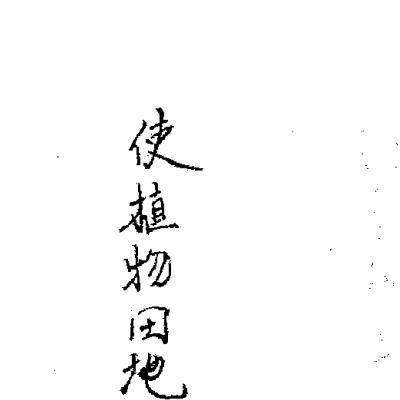 使植物田地